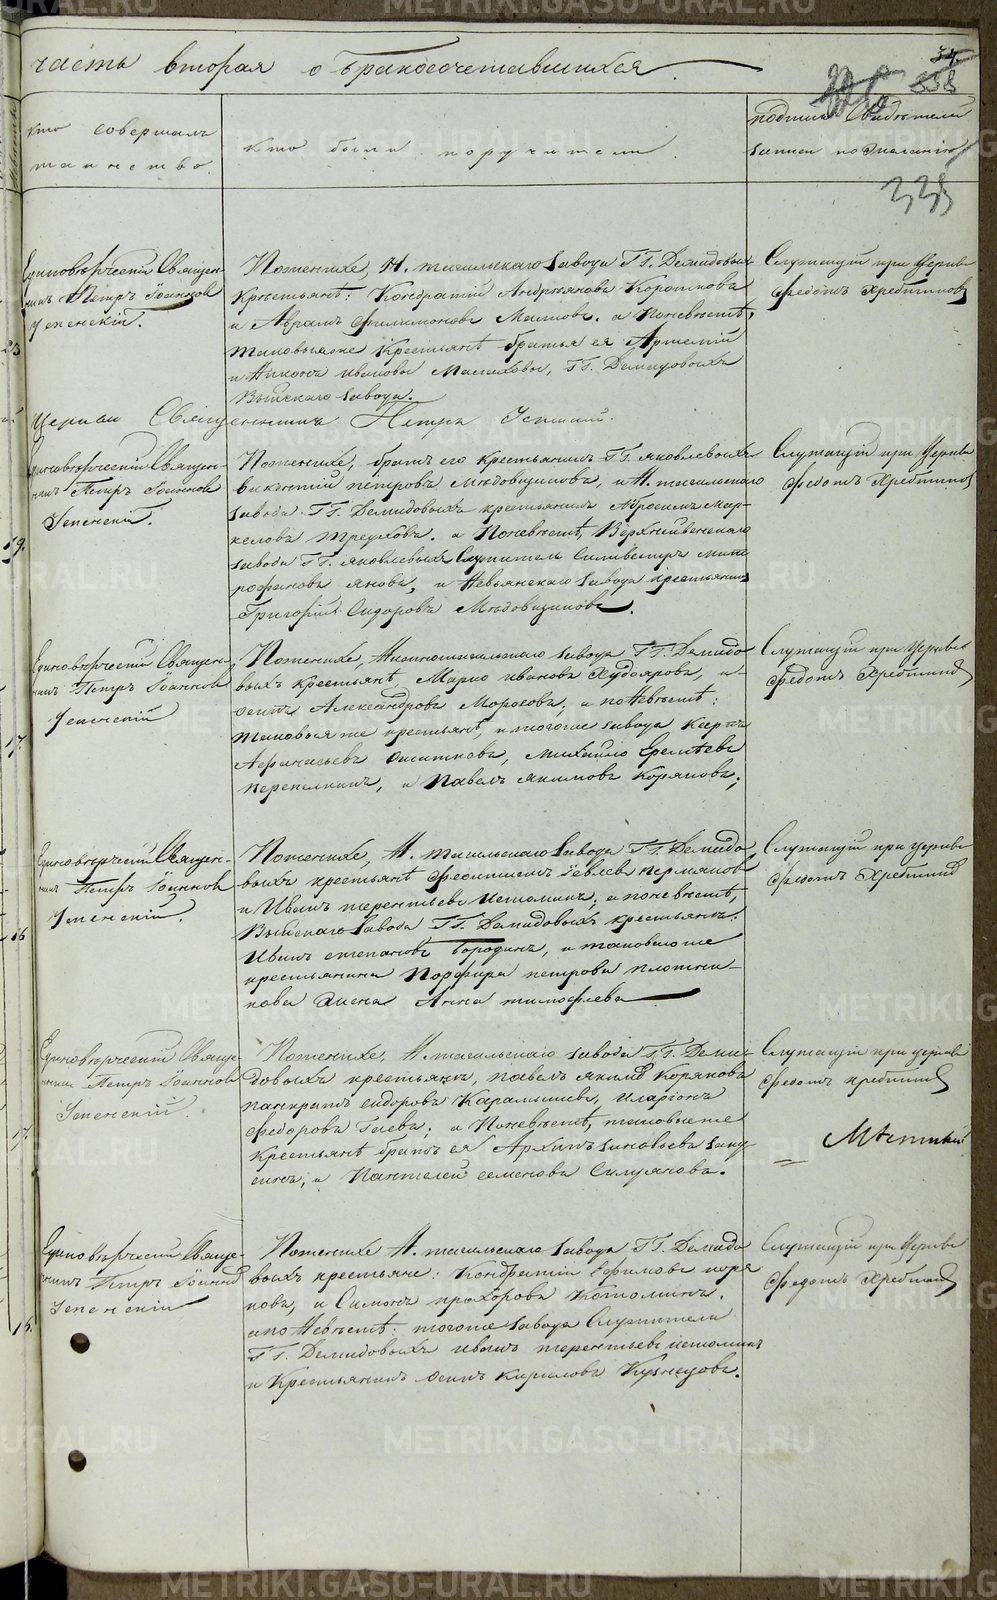 часть вторая о бракосочетавшихся
34
338
кто совершалъ таинство.
кто были поручители.
подпись Свидѣтелей записи по желанію
338
Единовѣрческій Священ-
никъ Петръ Іоанновъ
Успенскій.
Поженихѣ, Н. тагильскаго завода ГГ. Демидовыхъ
крестьянѣ: Кондратій Андреяновъ Коротковъ
и Аврамъ Филимоновъ Масловъ. а Поневѣстѣ,
таковыеже Крестьянѣ братья ея Арсеній
и Никонъ Ивановы Малаховы, ГГ. Демидовыхъ
Выйскаго завода.
Служащій при Церкви
Федотъ Хребтиковъ
23
Церкви Священникъ Петръ Успенскій.
Единовѣрческій Священ-
никъ Петръ Іоанновъ
Успенскій.
Поженихѣ, братъ его крестьянинъ ГГ. Яковлевыхъ
Викентій петровъ Мѣдовщиковъ, и Н. тагильскаго
завода ГГ. Демидовыхъ крестьянинъ Абросимъ Мар-
келовъ Треуховъ. а Поневѣстѣ, Верхнейвенскаго
завода ГГ. Яковлевыхъ Служитель Силивестръ Мит
рофановъ Яковъ, и Невьянскаго завода крестьянинъ
Григорій Сидоровъ Мѣдовщиковъ.
Служащій при Церкви
Федотъ Хребтиковъ
19.
Единовѣрческій Священ-
никъ Петръ Іоанновъ
Успенскій
Поженихѣ, Нижнетагильскаго завода ГГ. Демидо
выхъ крестьянѣ, Марко Ивановъ Худояровъ, и
осипъ Александровъ Морозовъ; а поневѣстѣ:
таковыеже крестьянѣ, и тогоже завода Карпъ
Афанасьевъ, Михайло Еремѣевъ
перепелкинъ, и Павелъ Якимовъ Коряковъ;
Служащій при Церкви
Федотъ Хребтиковъ
17.
Единовѣрческій Священ-
никъ Петръ Іоанновъ
Успенскій.
Поженихѣ, Н. тагильскаго завода ГГ. Демидо
выхъ крестьянѣ Феоктистъ Іевлевъ пермяковъ
и Иванъ терентьевъ Истоминъ; а поневѣстѣ,
Выйскаго завода ГГ. Демидовыхъ крестьянинъ:
Иванъ степановъ Бородинъ, и таковагоже
крестьянина Порфира петрова плотни-
кова жена Анна тимофеева
Служащій при церкви
Федотъ Хребтиковъ
16
Единовѣрческій Свяще-
нникъ Петръ Іоанновъ
Успенскій.
Поженихѣ, Н. тагильскаго завода ГГ. Деми-
довыхъ крестьянѣ, павелъ якимовъ Коряковъ
панкратъ сидоровъ Карамышевъ, иларіонъ
федоровъ Гаевъ; а Поневѣстѣ, таковыеже
крестьянѣ братъ ея Архипъ зиновьевъ
и Пантелей семеновъ Силуяновъ.
Служащій при церкви
федотъ хребтиковъ
17.
Единовѣрческій Свяще-
нникъ Петръ Іоанновъ
Успенскій
Поженихѣ Н. тагильскаго завода ГГ. Демидо
выхъ крестьяне: Кондратій Ефимовъ коря
ковъ, и Симонъ прохоровъ Котоминъ.
апоневѣстѣ: тогоже завода Служители
ГГ. Демидовыхъ иванъ терентьевъ истоминъ
и Крестьянинъ осипъ кириловъ Кузнецовъ.
Служащій при Церкви
Федотъ Хребтиковъ
16.
METRIKI.GASO-URAL.RU